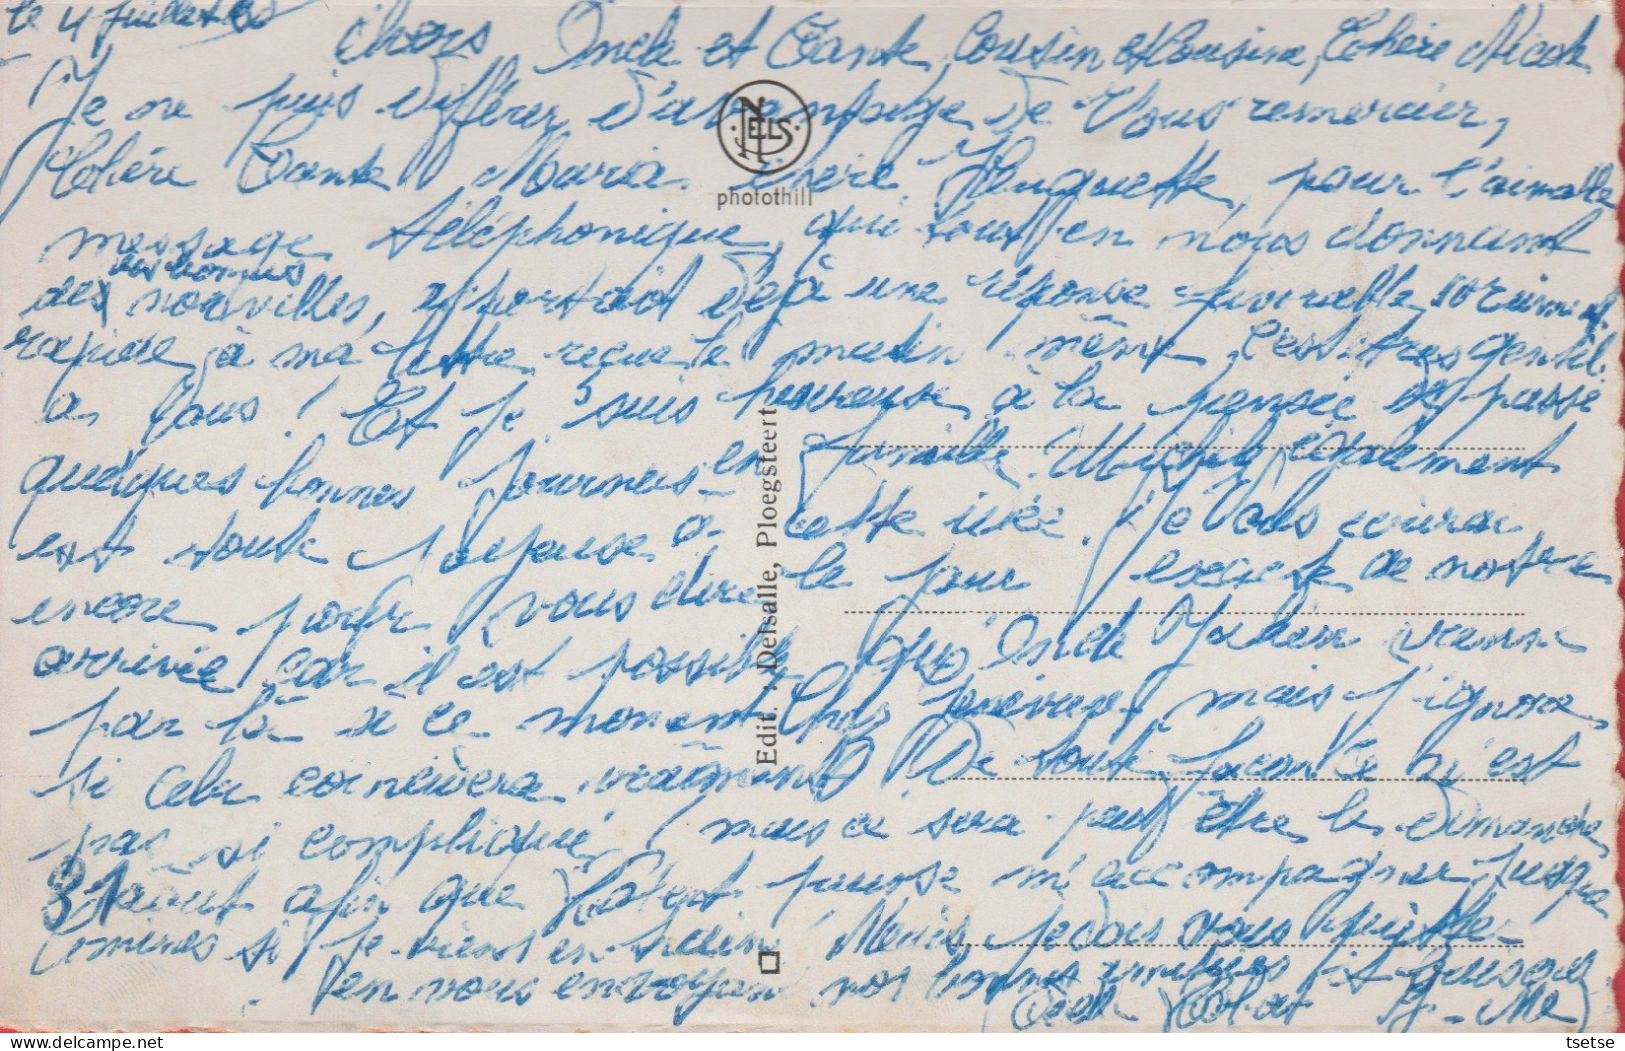 le 4 Juillet 60
Chers Oncle et Tante, Cousin et Cousine, Chère Nicole
Je ne puis différer d'avantage de Vous remercier,
Chère Tante Maria chère Huguette, pour l'aimable
message téléphonique, qui tout en nous donnant
des bonnes
des nouvelles, apportait déjà une réponse favorable, vraiment
rapide, à ma lettre reçue le matin même, c'est très gentil
à Vous! Et je suis heureuse, à la pensée de passer
quelques bonnes journées en famille. également
est toute joyeuse à cette idée. Je Vous écrirai
encore pour vous dire le jour exact de notre
arrivée car il est possible qu'Oncle vienne
par là à ce moment mais j'ignore
si cela vraiment De toute façon ce n'est
pas si compliqué, mais ce sera peut être le Dimanche
31 août afin que puisse m'accompagner jusqu'à
Comines si je viens en train! Mais je dois vous quitter
en vous envoyant nos bonnes amitiés et
A-Me
NELS
photothill
Edit. : Delsalle, Ploegsteert
tsetse